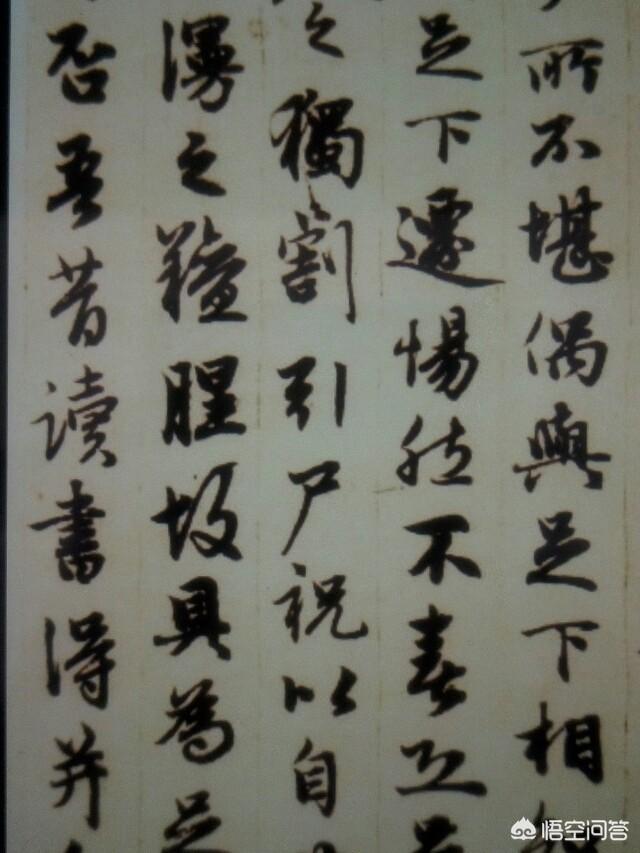 所不堪偶與足下相
足下遷惕然不喜恐足
之獨割引尸祝以自
漫之羶腥故具為足
否吾昔讀書得并
悟空问答